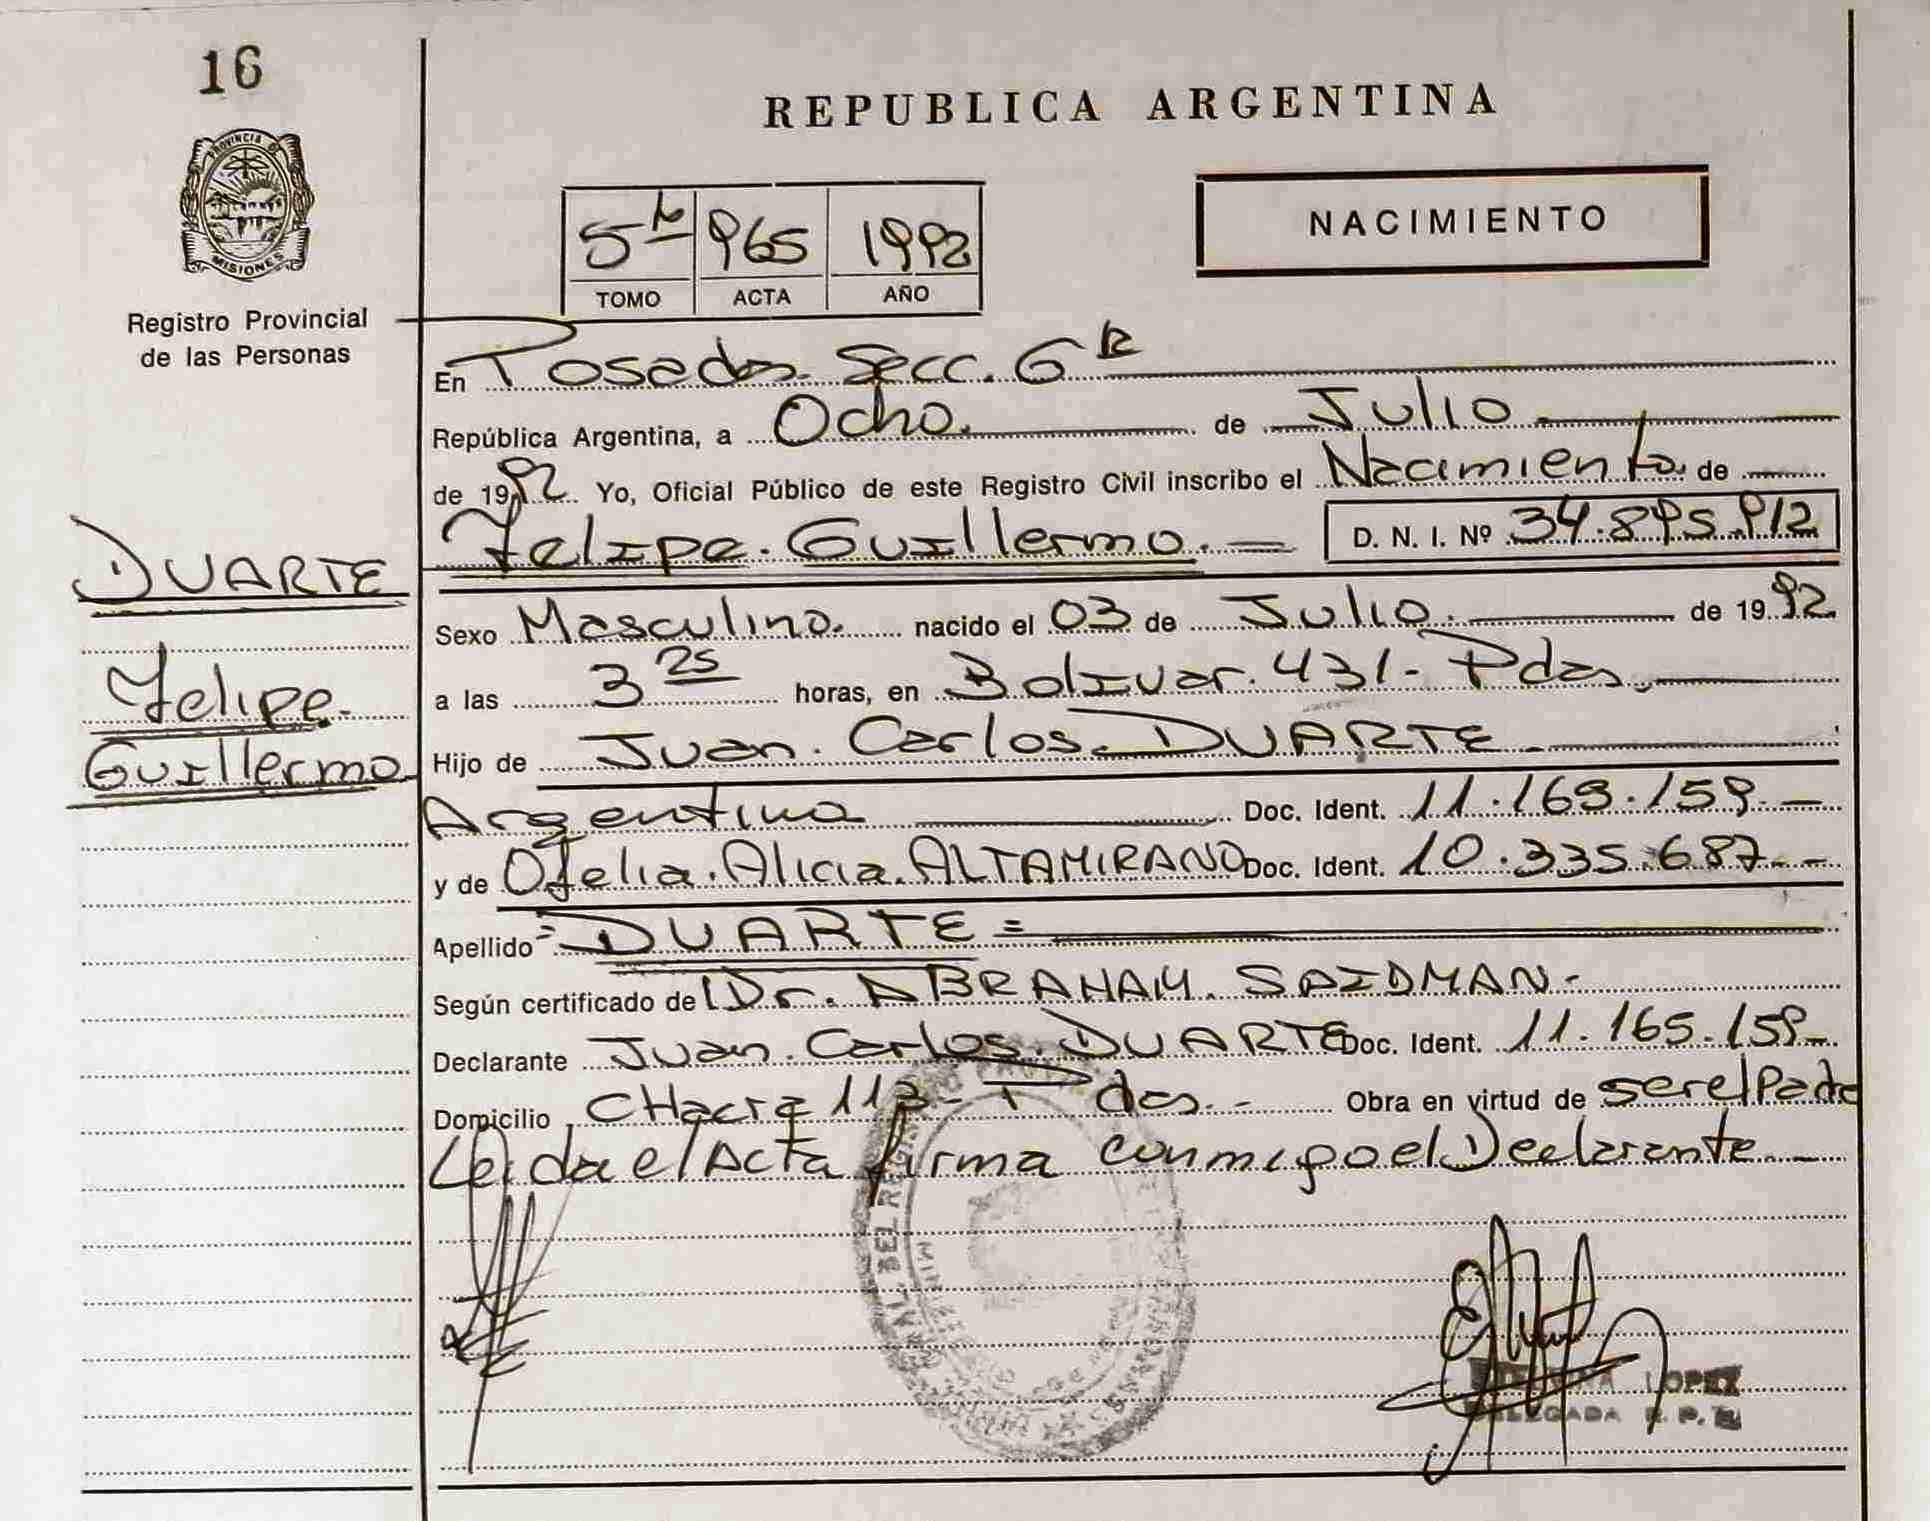 16
PROVINCIA DE
MISIONES
Registro Provincial
de las Personas
DUARTE
Felipe
Guillermo
REPUBLICA ARGENTINA
NACIMIENTO
5to 965 1992
TOMO ACTA AÑO
En Posadas Secc. 6ta
República Argentina, a Ocho. de Julio
de 1992 Yo, Oficial Público de este Registro Civil inscribo el Nacimiento de
Felipe. Guillermo. D. N. I. Nº 34.895.912
Sexo Masculino. nacido el 03 de Julio. de 1992
a las 3 25 horas, en Bolivar. 431 - Pdas.
Hijo de Juan. Carlos. DUARTE
Argentino Doc. Ident. 11.169.159.
y de Ofelia. Alicia. ALTAMIRANO Doc. Ident. 10.335.687
Apellido = DUARTE =
Según certificado de Dr. ABRAHAM. SAIDMAN.
Declarante Juan. Carlos. DUARTE Doc. Ident. 11.165.159
Domicilio CHacra 112 - Pdas. - Obra en virtud de ser el Padre
Leida el Acta firma conmigo el Declarante
LOPEZ
DELEGADA R. P.